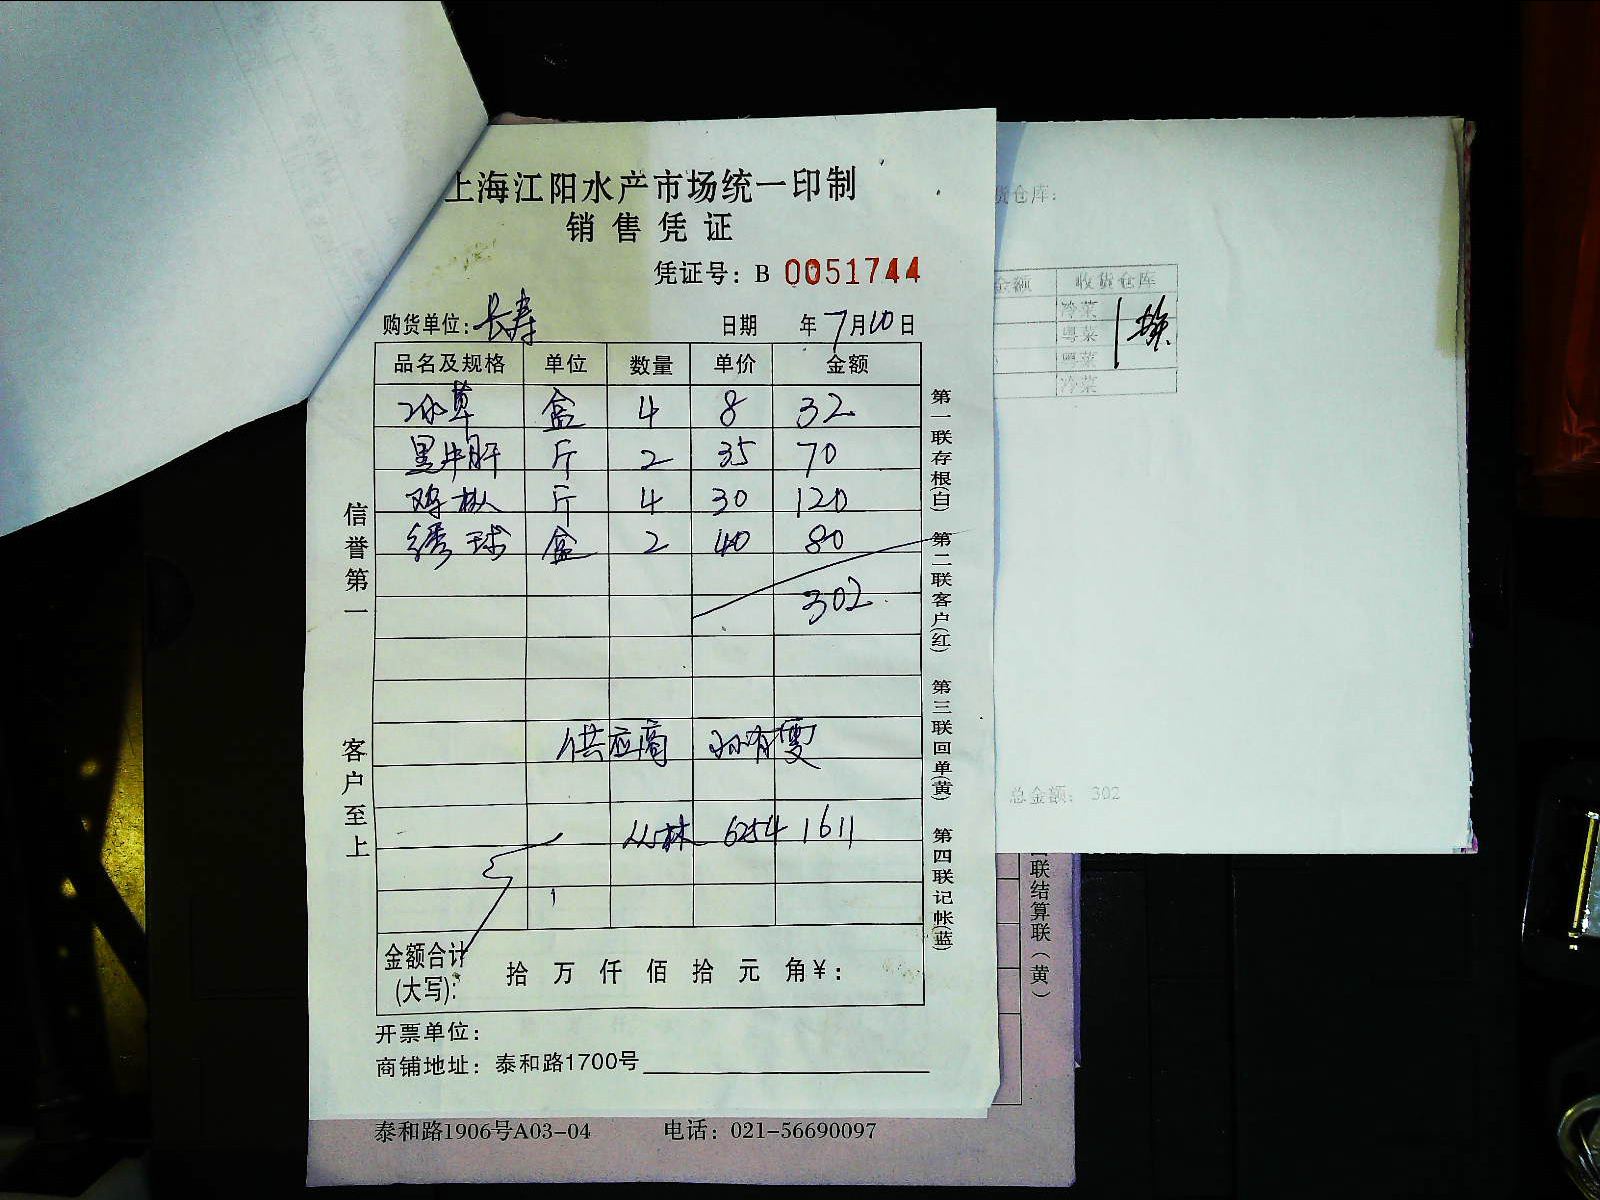 上海江阳水产市场统一印制
销售凭证
凭证号: B 0051744
购货单位: 长寿 日期 年 7月10日
品名及规格 单位 数量 单价 金额
冰草 盒 4 8 32
黑牛肝 斤 2 35 70
鸡枞 斤 4 30 120
绣球 盒 2 40 80
302
供应商 孙有雯
丛林 6254 1611
金额合计
(大写): 拾 万 仟 佰 拾 元 角 ¥:
开票单位:
商铺地址: 泰和路1700号
信誉第一
客户至上
第一联存根(白) 第二联客户(红) 第三联回单(黄) 第四联记帐(蓝)
货仓库:
金额 收货仓库
冷菜
粤菜
粤菜
冷菜
总金额: 302
联结算联(黄)
泰和路1906号A03-04 电话: 021-56690097